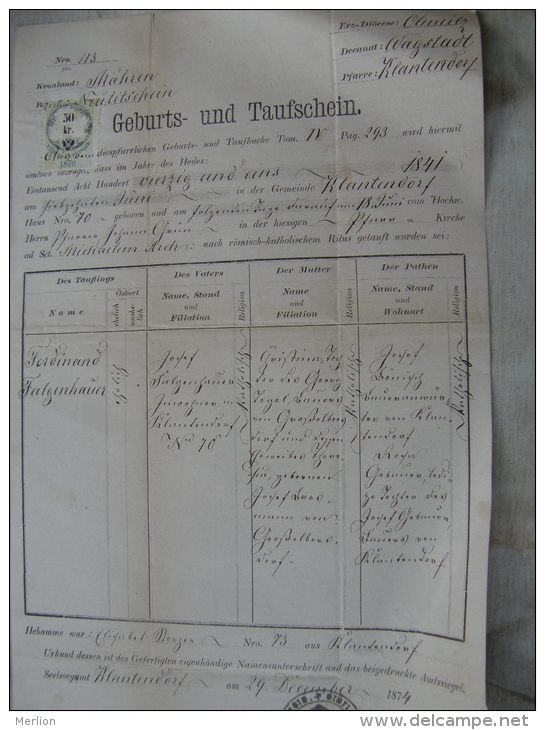 Nro. 113
Erz-Diöcese: Olmütz
Decanat: Wagstadt
Pfarre: Klantendorf
Kronland: Mähren
Bezirk: Neutitschein
50
kr.
1870
Geburts- und Taufschein.
diespfarrlichen Geburts- und Taufbuche Tom. IV Pag. 293 wird hiermit
ämtlich bezeugt, dass im Jahre des Heiles:
Eintausend Acht Hundert vierzig und eins 1841
am siebzehnten Juni in der Gemeinde Klantendorf
Haus Nro. 70 geboren und am folgenden Tage darauf am 18 Juni vom Hochw.
Herrn Pfarrer Johann in der hiesigen Pfarr Kirche
ad Sct. Michaelem Arch: nach römisch-katholischem Ritus getauft worden sei:
Des Täuflings
Name
Geburt
ehelich
unehelich
Des Vaters
Name, Stand
und
Filiation
Religion
Der Mutter
Name
und
Filiation
Religion
Der Pathen
Name, Stand
und
Wohnort
Religion
Ferdinand
Falgenhauer
ehelich
Josef
Falgenhauer
Inwohner in
Klantendorf
Nro 70
Katholisch
Cristina, Toch-
ter des Georg
Bauers
von Großolbers
dorf und dessen
Eheweibes There-
sia, gebornen
Josef
mann von
Großolbers-
dorf.
Katholisch
Josef
von Klan-
tendorf
Rosa
Gebauer, ledi-
ge Tochter des
Josef Gebauer,
Bauers von
Klantendorf.
Katholisch
Hebamme war: Elisabet Nro. 73 aus Klantendorf
Urkund dessen ist des Gefertigten eigenhändige Namensunterschrift und das beigedruckte Amtssiegel.
Seelsorgamt Klantendorf am 29. December 1874
Merlion
www.delcampe.net